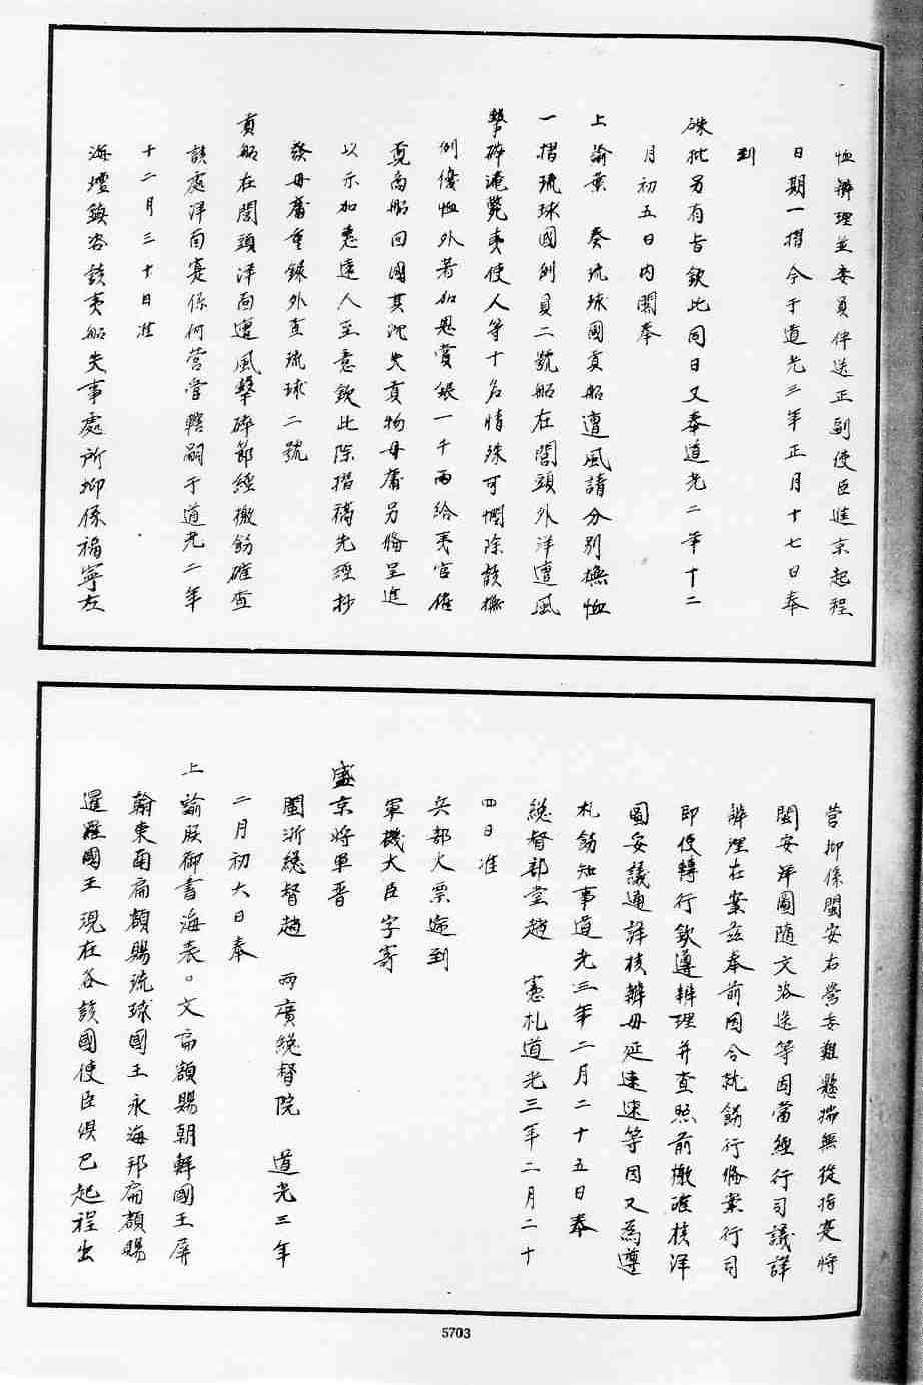 恤辦理並委員伴送正副使臣進京起程
日期一摺今于道光三年正月十七日奉
到
硃批另有旨欽此同日又奉道光二年十二
月初五日內閣奉
上諭葉 奏琉球國貢船遭風請分別撫恤
一摺琉球國例貢二號船在閩頭外洋遭風
擊碎淹斃夷使人等十名情殊可憫除該撫
例優恤外著加恩賞銀一千兩給夷官僱
覓商船回國其沈失貢物毋庸另備呈進
以示加惠遠人至意欽此除摺稿先經抄
發毋庸重錄外查琉球二號
貢船在閩頭洋面遭風擊碎節經檄飭確查
該處洋面寔係何營管轄嗣于道光二年
十二月三十日准
海壇鎮咨該夷船失事處所抑係福寧左
營抑係閩安右營委難懸揣無從指寔將
閩安洋圖隨文咨送等因當經行司議詳
辦理在案茲奉前因合就飭行備案行司
即便轉行欽遵辦理并查照前檄確核洋
圖妥議通詳核辦毋延速速等因又為遵
札飭知事道光三年二月二十五日奉
總督部堂趙 憲札道光三年二月二十
四日准
兵部火票遞到
軍機大臣字寄
盛京將軍晉
閩浙總督趙 兩廣總督院 道光三年
二月初六日奉
上諭朕御書海表。文扁額賜朝鮮國王屏
翰東南扁額賜琉球國王永海邦扁額賜
暹羅國王現在各該國使臣俱已起程出
5703